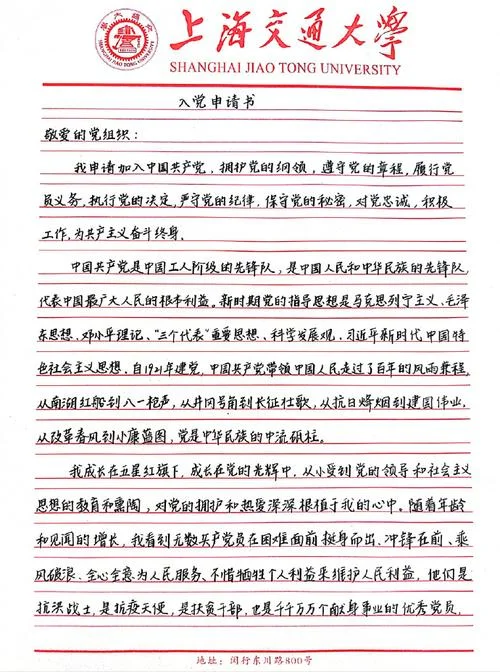 上海交通大学
SHANGHAI JIAO TONG UNIVERSITY
入党申请书
敬爱的党组织:
我申请加入中国共产党,拥护党的纲领,遵守党的章程,履行党
员义务,执行党的决定,严守党的纪律,保守党的秘密,对党忠诚,积极
工作,为共产主义奋斗终身。
中国共产党是中国工人阶级的先锋队,是中国人民和中华民族的先锋队,
代表中国最广大人民的根本利益。新时期党的指导思想是马克思列宁主义、毛泽
东思想、邓小平理论、“三个代表”重要思想、科学发展观、习近平新时代中国特
色社会主义思想。自1921年建党,中国共产党带领中国人民走过了百年的风雨兼程,
从南湖红船到八一枪声,从井冈号角到长征壮歌,从抗日烽烟到建国伟业,
从改革春风到小康蓝图,党是中华民族的中流砥柱。
我成长在五星红旗下,成长在党的光辉中,从小受到党的领导和社会主义
思想的教育和熏陶,对党的拥护和热爱深深根植于我的心中。随着年龄
和见闻的增长,我看到无数共产党员在困难面前挺身而出、冲锋在前、乘
风破浪、全心全意为人民服务、不惜牺牲个人利益来维护人民利益,他们是
抗洪战士,是抗疫天使,是扶贫干部,也是千千万万个献身事业的优秀党员,
地址:闵行东川路800号